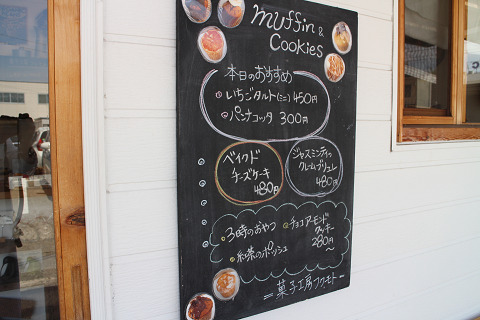 muffin &
Cookies
本日のおすすめ
いちごタルト(ミニ) 450円
パンナコッタ 300円
ベイクド
チーズケーキ
480円
ジャスミンティの
クレームブリュレ
480円
3時のおやつ
紅茶のポッシュ
チョコアーモンド
クッキー
280円
〜
=菓子工房フクモト=